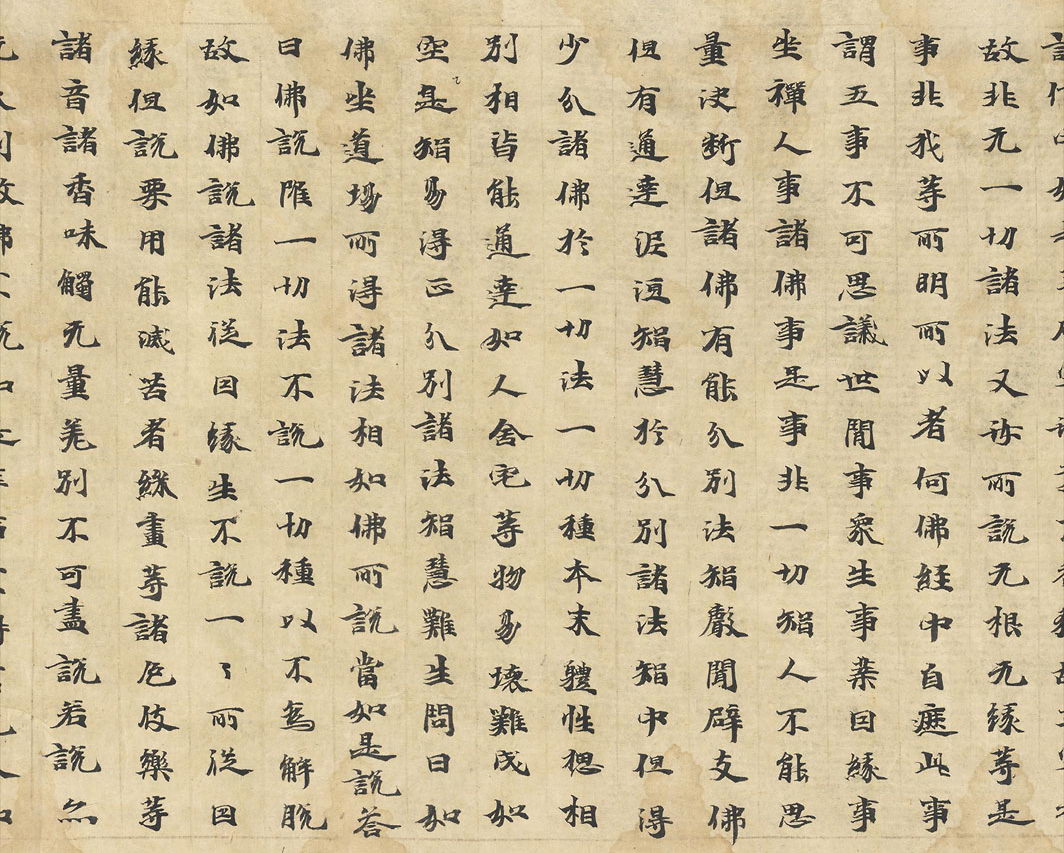 故非无一切諸法又你所說无根无緣等是
事非我等所明所以者何佛経中自遮此事
謂五事不可思議世間事衆生事業因緣事
坐禪人事諸佛事是事非一切智人不能思
量決斷但諸佛有能分別法智聲聞辟支佛
但有通達泥洹智慧於分別諸法智中但得
少分諸佛於一切法一切種本末體性揔相
別相皆能通達如人舍宅等物易壞難成如
空是智易得正分別諸法智慧難生問曰如
佛坐道場所得諸法相如佛所說當如是說荅
曰佛說雖一切法不說一切種以不為解脫
故如佛說諸法從因緣生不說一〻所從因
緣但說要用能滅苦者綵畫等諸色伎樂等
諸音諸香味觸无量差別不可盡說若說亦